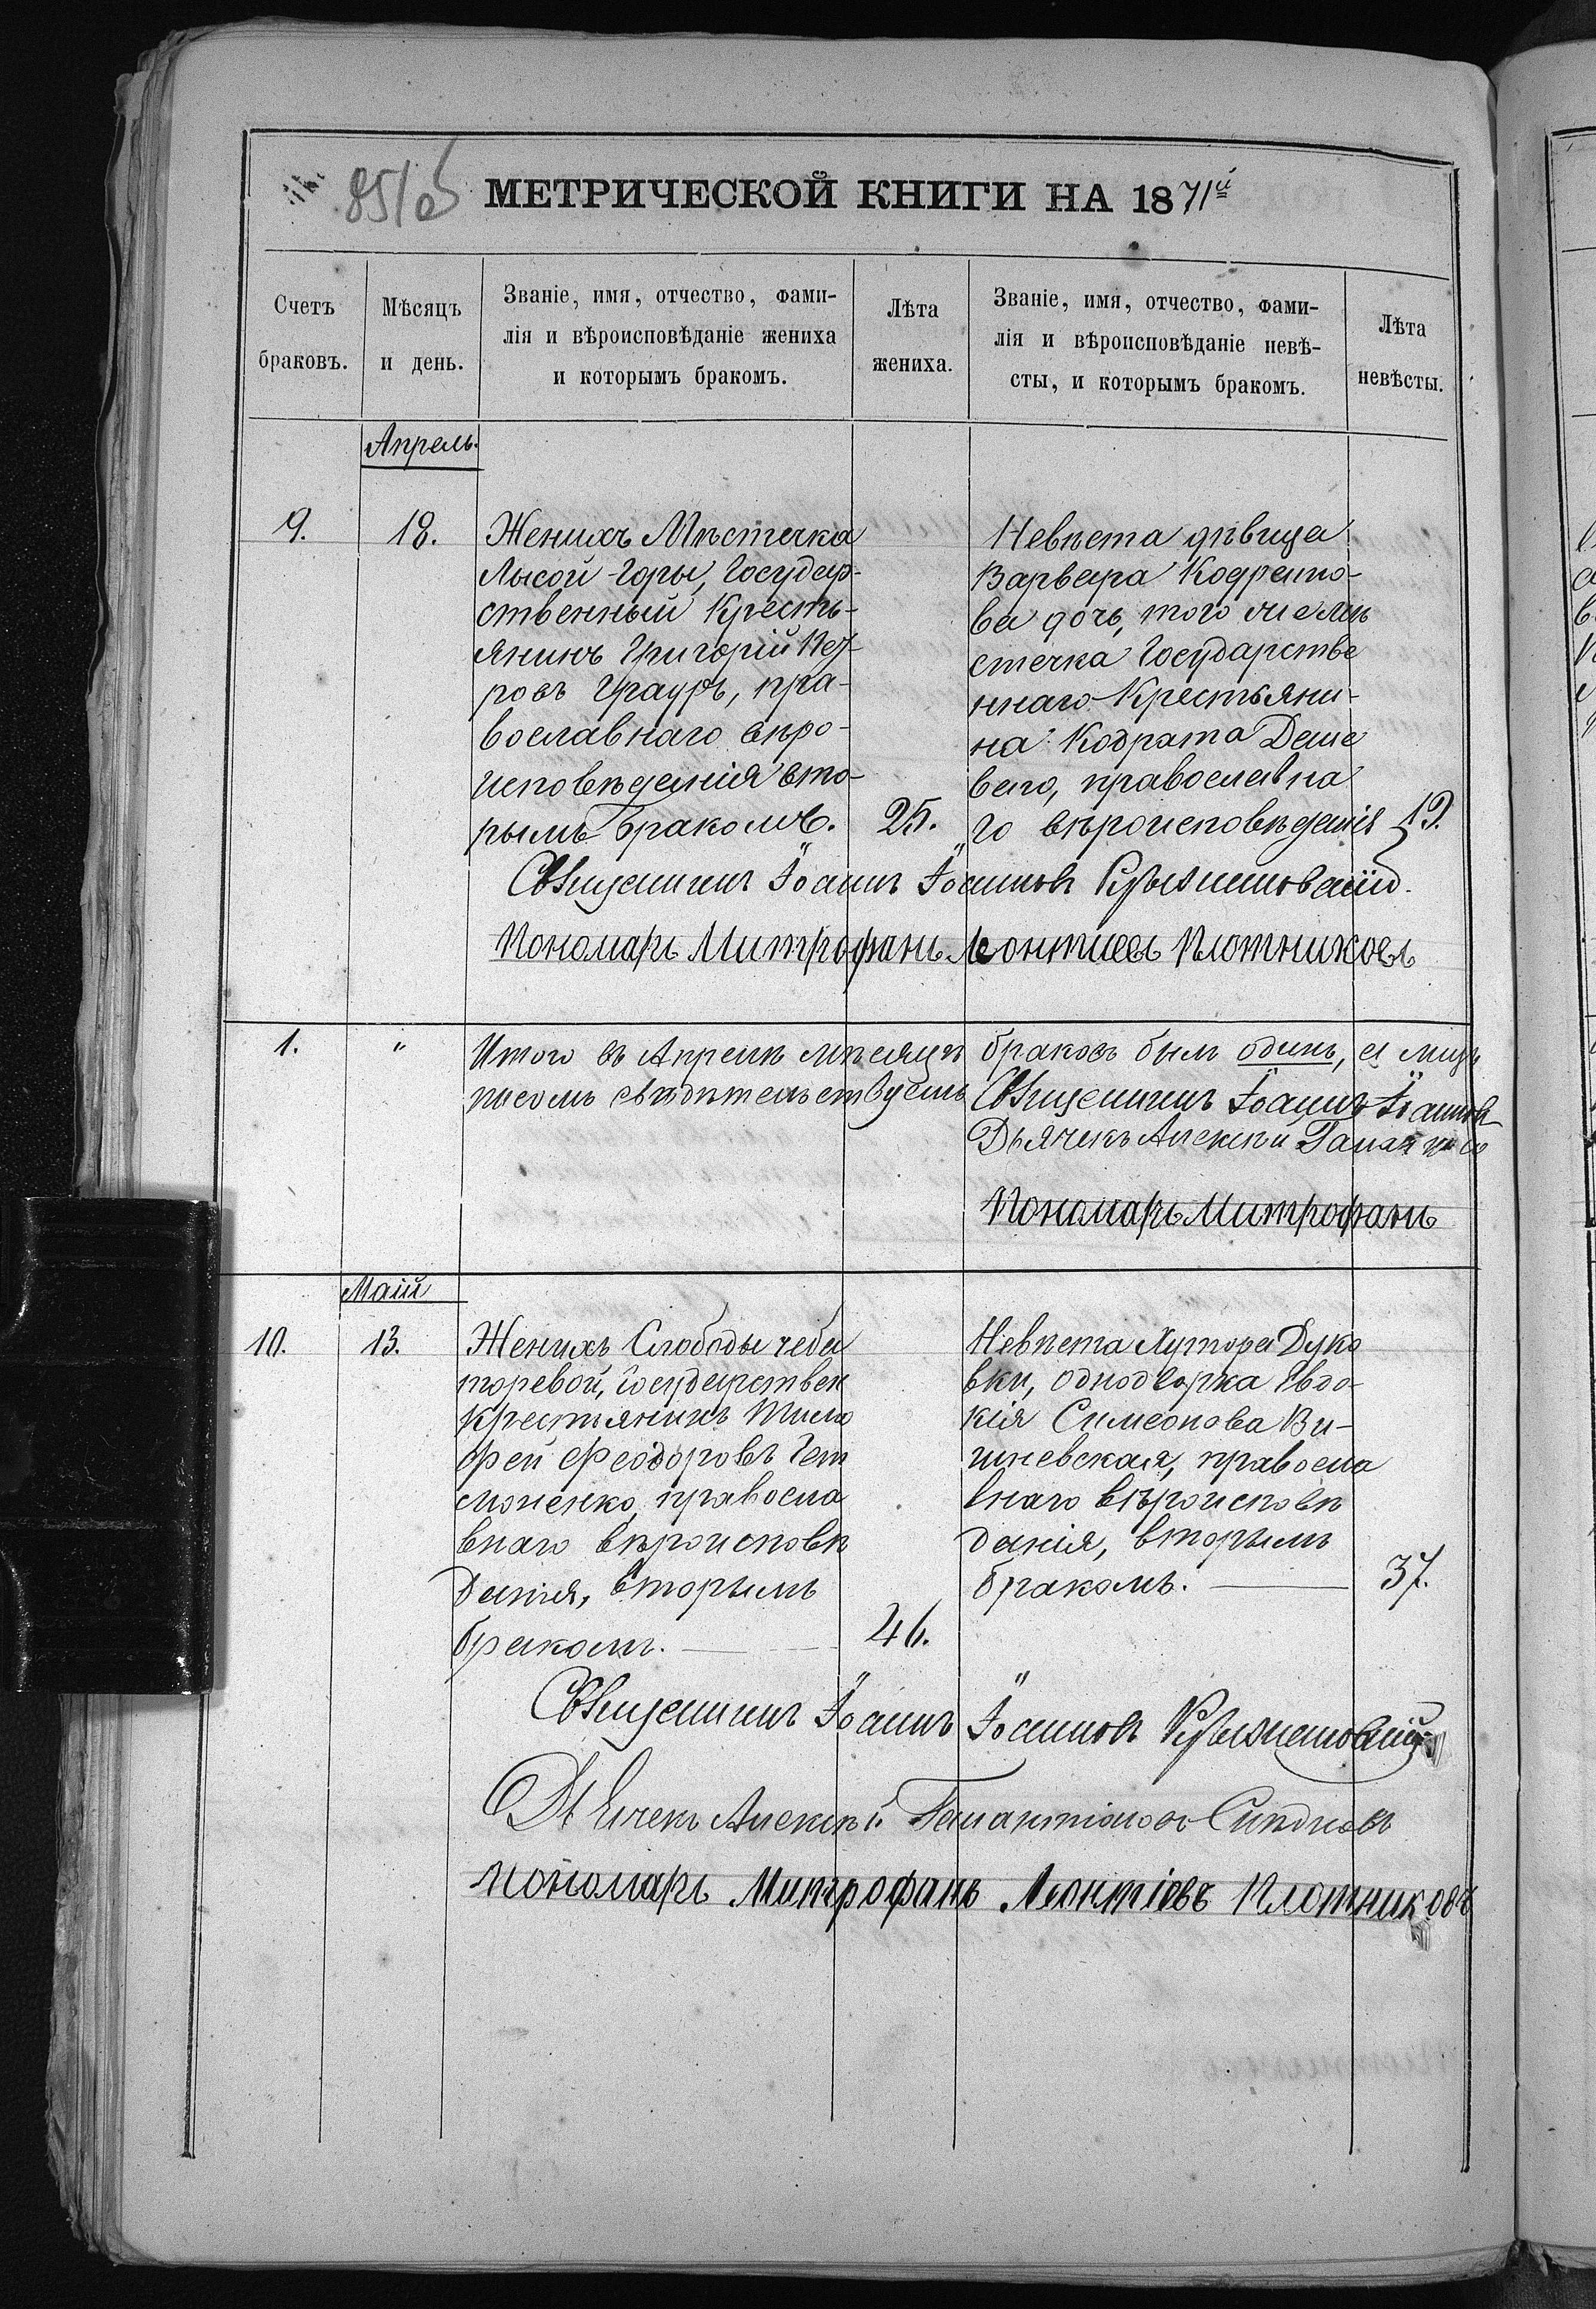 85/об
МЕТРИЧЕСКОЙ КНИГИ НА 1871й
Счетъ браковъ.
Мѣсяцъ и день.
Званіе, имя, отчество, фами-
лія и вѣроисповѣданіе жениха
и которымъ бракомъ.
Лѣта жениха.
Званіе, имя, отчество, фами-
лія и вѣроисповѣданіе невѣ-
сты, и которымъ бракомъ.
Лѣта невѣсты.
Апрель.
9.
18.
Женихъ Мѣстечка
Лысой-Горы, Государ-
ственный Кресть-
янинъ Григорій Пет-
ровъ Грауръ, пра-
вославнаго вѣро-
исповѣданія вто-
рымъ бракомъ.
25.
Невѣста дѣвица
Варвара Кодрато-
ва дочь, того же мѣ
стечка Государстве
ннаго Крестьяни-
на Кодрата Деше
ваго, православна
го вѣроисповѣданія
19.
Священникъ Іоаннъ Іоанновъ
Пономарь Митрофанъ Леонтиевъ Плотниковъ
1.
"
Итого въ Апрелѣ мѣсяцѣ браковъ былъ одинъ,
писомъ свидѣтельствуемъ
Священникъ Іоаннъ Іоанновъ
Дьячекъ Алексѣй
Пономарь Митрофанъ
Маій
10.
13.
Женихъ Слободы Чеба
торевой, государствен
крестьянинъ Тимо
фей Феодоровъ Гет
моненко, правосла
внаго вѣроисповѣ
данія, вторымъ
бракомъ.
46.
Невѣста Хутора Дуко
вки, однодворка Евдо-
кія Симеонова Ви-
шневская, правосла
внаго вѣроисповѣ
данія, вторымъ
бракомъ.
37.
Священникъ Іоаннъ Іоанновъ
Дьячекъ Алексѣй
Пономарь Митрофанъ Леонтіевъ Плотниковъ